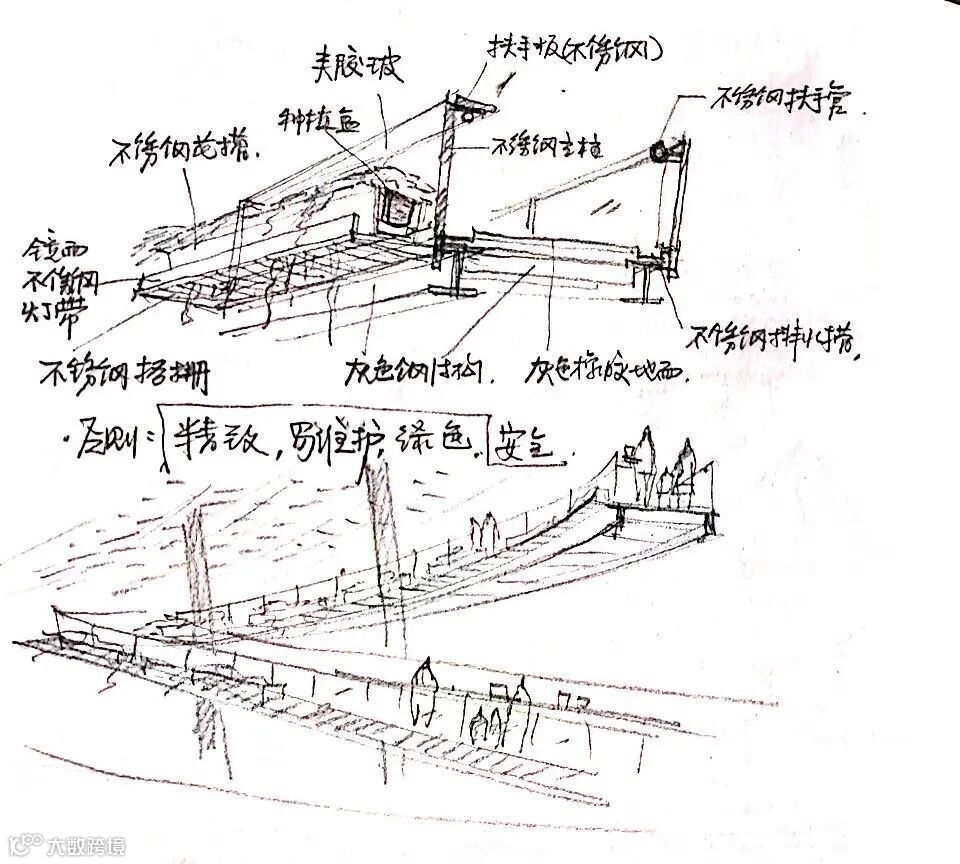 扶手板(不锈钢)
夹胶玻
不锈钢扶手管
种植盒
不锈钢花槽
不锈钢立柱
镜面
不锈钢
灯带
不锈钢排水槽
不锈钢格栅
灰色钢结构
灰色橡胶地面
·原则：精致，易维护，绿色，安全
大数跨境